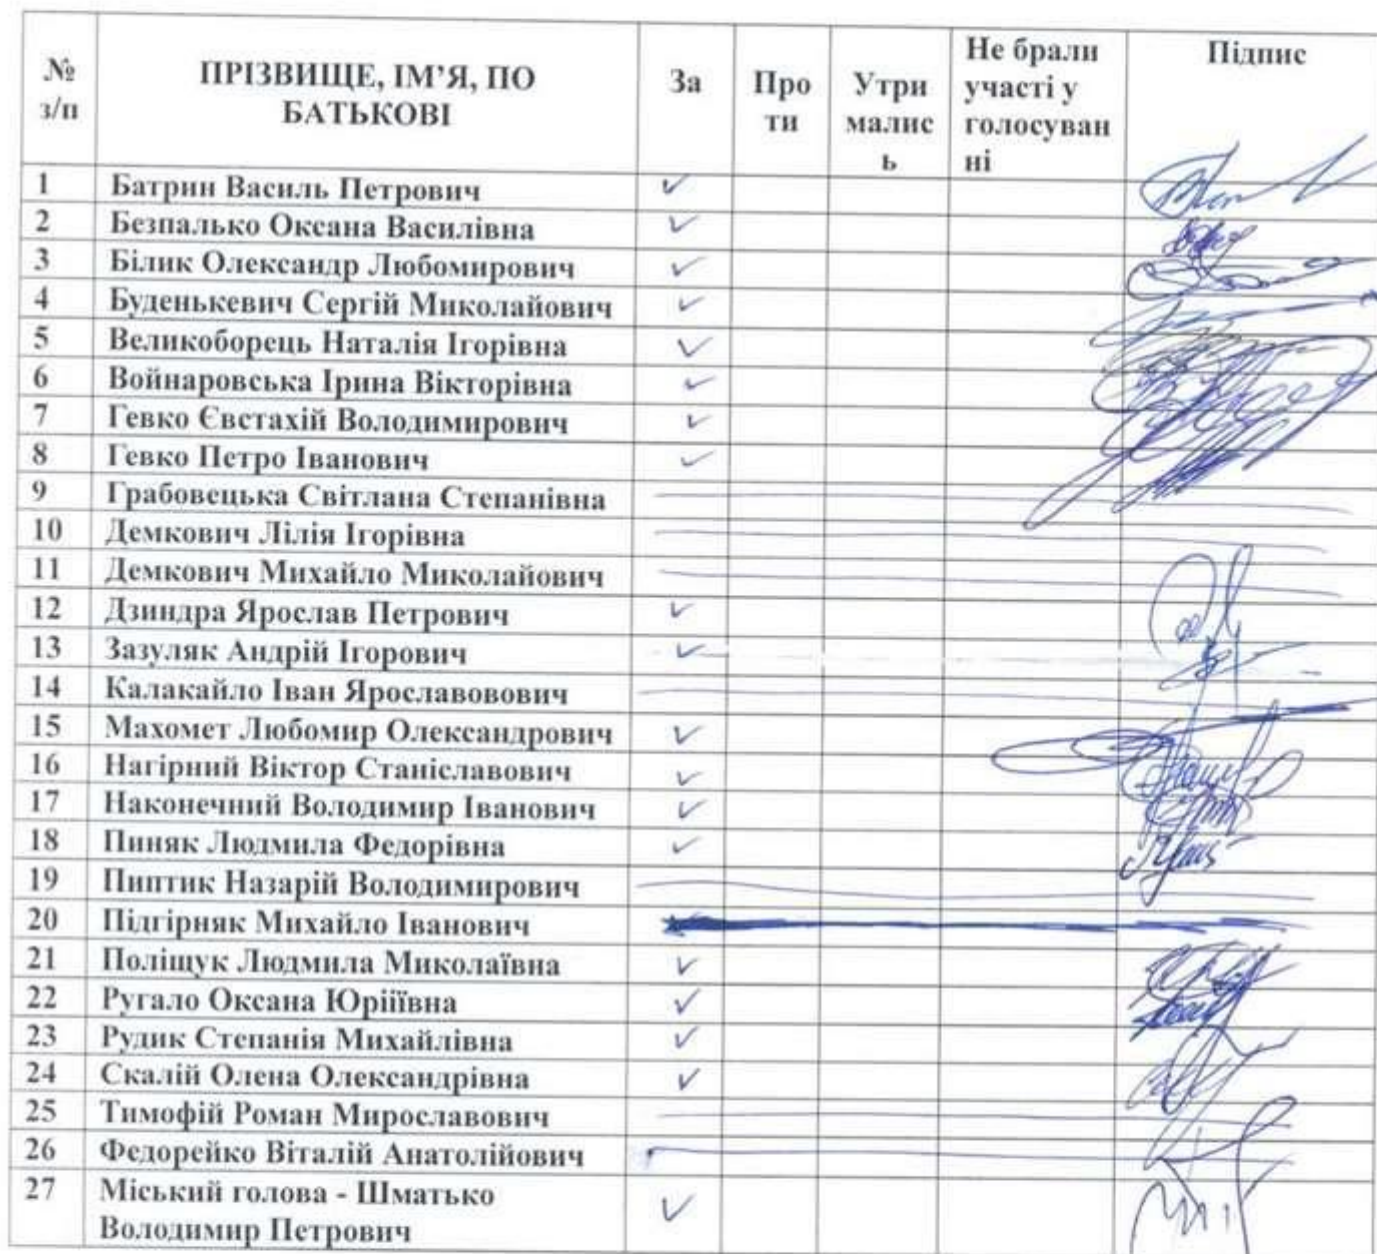 № з/п ПРІЗВИЩЕ, ІМ’Я, ПО БАТЬКОВІ За Про ти Утри малис ь Не брали участі у голосуван ні Підпис
1 Батрин Василь Петрович ✓
2 Безпалько Оксана Василівна ✓
3 Білик Олександр Любомирович ✓
4 Буденькевич Сергій Миколайович ✓
5 Великоборець Наталія Ігорівна ✓
6 Войнаровська Ірина Вікторівна ✓
7 Гевко Євстахій Володимирович ✓
8 Гевко Петро Іванович ✓
9 Грабовецька Світлана Степанівна
10 Демкович Лілія Ігорівна
11 Демкович Михайло Миколайович
12 Дзиндра Ярослав Петрович ✓
13 Зазуляк Андрій Ігорович ✓
14 Калакайло Іван Ярославовович
15 Махомет Любомир Олександрович ✓
16 Нагірний Віктор Станіславович ✓
17 Наконечний Володимир Іванович ✓
18 Пиняк Людмила Федорівна ✓
19 Пиптик Назарій Володимирович
20 Підгірняк Михайло Іванович
21 Поліщук Людмила Миколаївна ✓
22 Ругало Оксана Юріїївна ✓
23 Рудик Степанія Михайлівна ✓
24 Скалій Олена Олександрівна ✓
25 Тимофій Роман Мирославович
26 Федорейко Віталій Анатолійович
27 Міський голова - Шматько
Володимир Петрович ✓